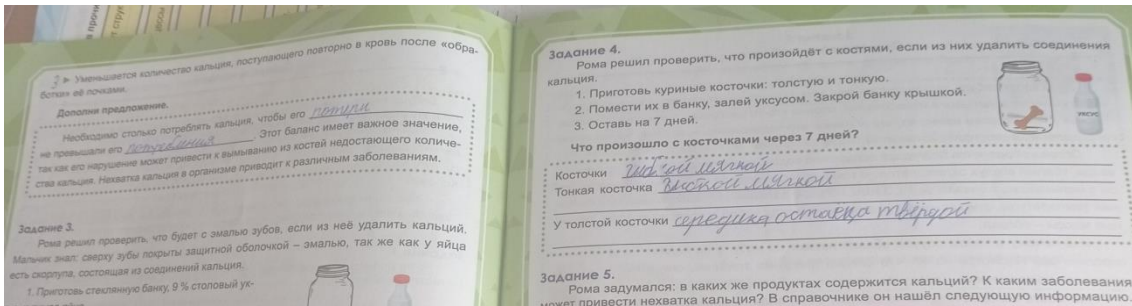 2 ► Уменьшается количество кальция, поступающего повторно в кровь после «обра-
ботки» её почками.
Дополни предложение.
Необходимо столько потреблять кальция, чтобы его потери
не превышали его потребления. Этот баланс имеет важное значение,
так как его нарушение может привести к вымыванию из костей недостающего количе-
ства кальция. Нехватка кальция в организме приводит к различным заболеваниям.
Задание 3.
Рома решил проверить, что будет с эмалью зубов, если из неё удалить кальций.
Мальчик знал: сверху зубы покрыты защитной оболочкой – эмалью, так же как у яйца
есть скорлупа, состоящая из соединений кальция.
1. Приготовь стеклянную банку, 9 % столовый ук-
Задание 4.
Рома решил проверить, что произойдёт с костями, если из них удалить соединения
кальция.
1. Приготовь куриные косточки: толстую и тонкую.
2. Помести их в банку, залей уксусом. Закрой банку крышкой.
3. Оставь на 7 дней.
УКСУС
Что произошло с косточками через 7 дней?
Косточки мягкой
Тонкая косточка мягкой
У толстой косточки середина остаеца твёрдой
Задание 5.
Рома задумался: в каких же продуктах содержится кальций? К каким заболевания
может привести нехватка кальция? В справочнике он нашёл следующую информацию